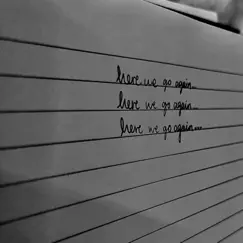 here we go again...
here we go again...
here we go again....